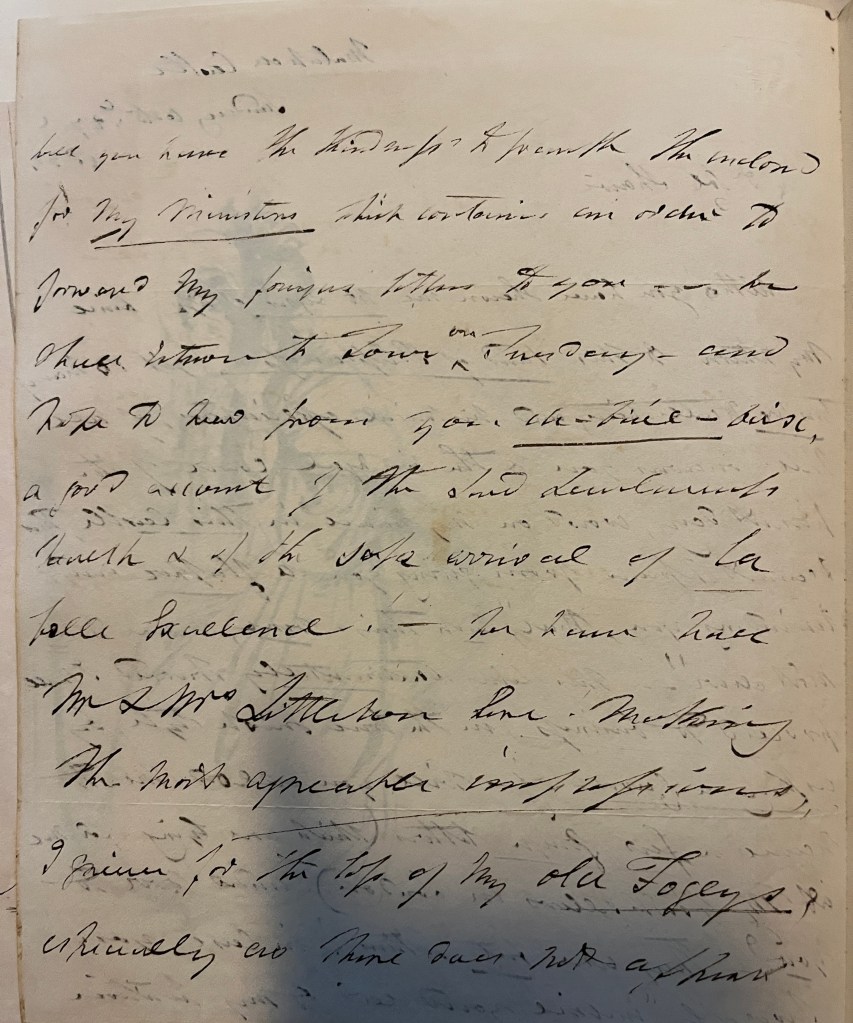 will you have the kindness to frank the enclosed
for My Ministers which contains an order to
forward my foreign letters to you — we
shall return to Town on Tuesday — and
hope to hear from you de-vive-voix,
a good account of the Lord Lieutenants
health & of the safe arrival of La
belle Excellence! — we have had
Mr & Mrs Littleton here. Making
the most agreable impressions,
I grieve for the loss of my old Fogeys,
especially as there does not appear